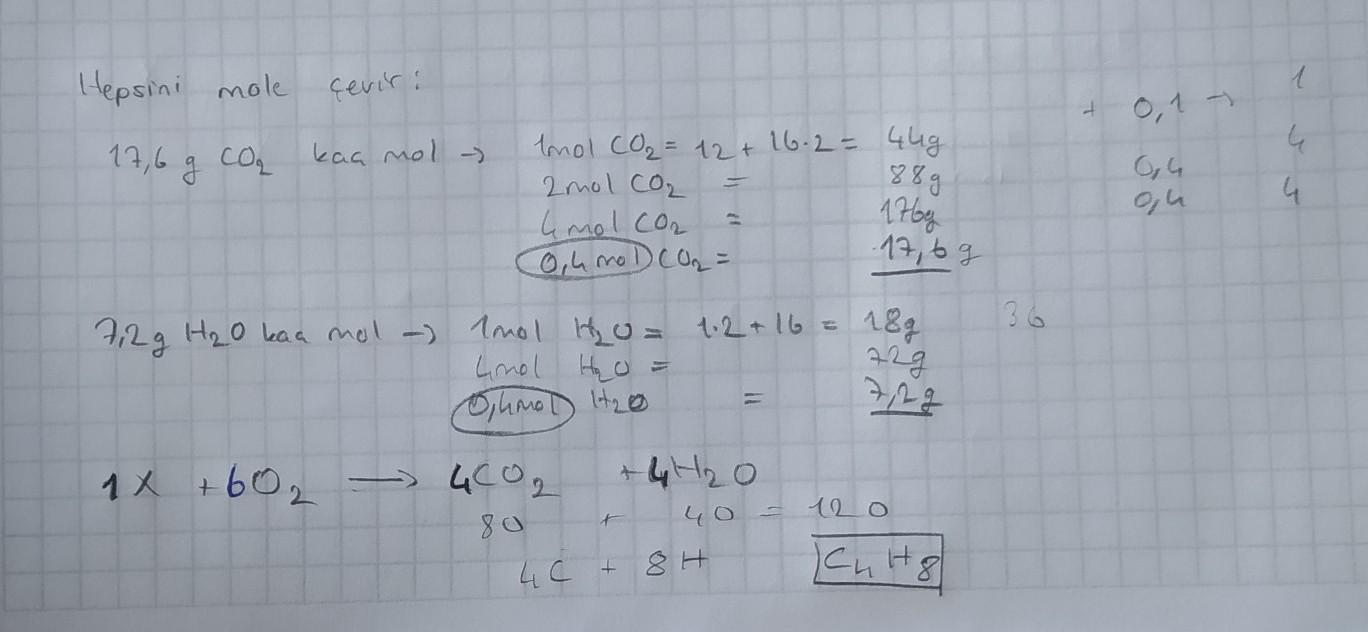 Hepsini mole çevir:
+ 0,1 → 1
17,6 g CO2 kaç mol → 1mol CO2 = 12 + 16.2 = 44g
0,4 4
2mol CO2 = 88g
0,4 4
4mol CO2 = 176g
0,4 mol CO2 = 17,6 g
7,2g H2O kaç mol → 1mol H2O = 1.2 + 16 = 18g 36
4mol H2O = 72g
0,4mol H2O = 7,2g
1X + 6O2 → 4CO2 + 4H2O
8O + 4O = 12O
4C + 8H C4H8